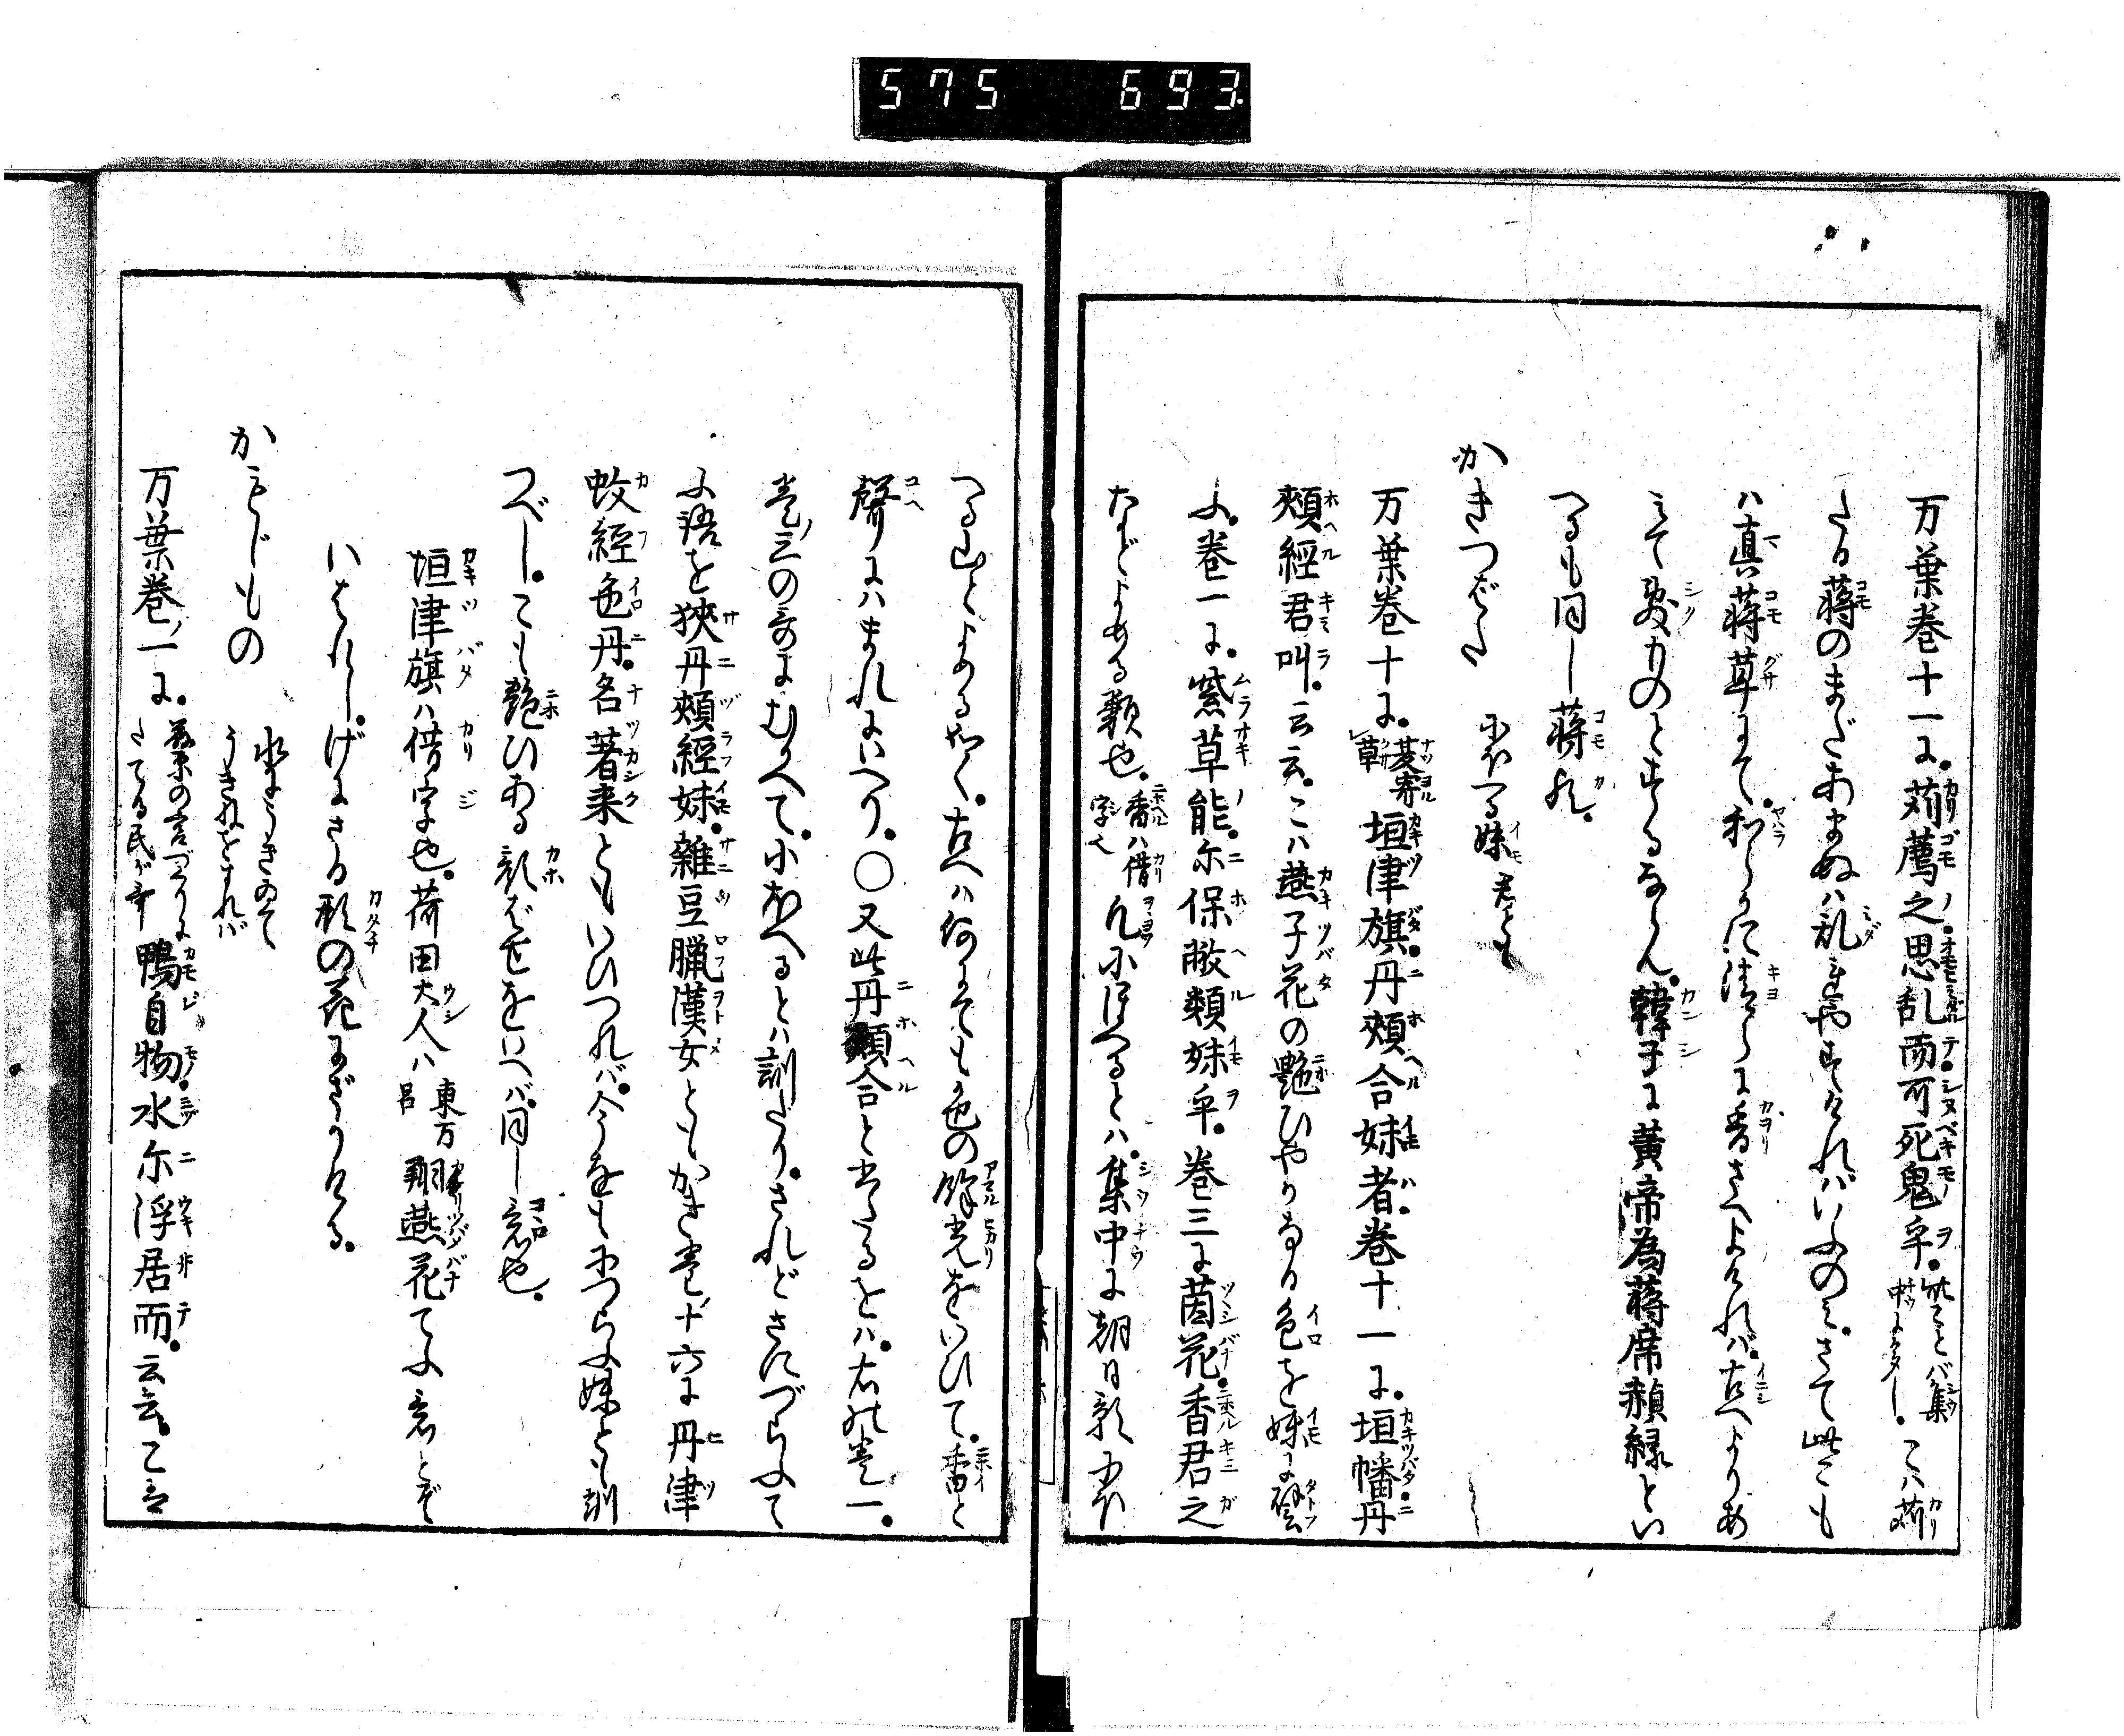 575 693
万葉巻十一に。苅薦之。思乱而。可死鬼乎。此ことバ集中に多し。こハ苅
たる蒋のまだあまぬハ乱れやすければいふのみ。さて此こも
ハ真蒋草にて。和らかに清らに香さへよければ。古へよりあ
みて敷ものとするならん。韓子に黄帝為蒋席赬緑とい
へるも同し蒋か。
かきつばた にほへる妹 君とも
万葉巻十に。垣津旗。丹頬合妹者。巻十一に。垣幡丹
頬經君叫。云云。こハ燕子花の艶ひやかなる色を妹に譬
ふ。巻一に。紫草能。尓保敝類妹乎。巻三に茵花。香君之
などよめる類也。香ハ借字也 凡にほへるとハ。集中に朝日影にほ
へる山とよめる如く。古へハ何にても色の餘光をいひて。香と
聲にハまれにいへり。〇又此丹頬合と書たるをハ。右の巻一。
巻三の哥にむかへて。にほへるとハ訓たり。されどさにづらふて
ふ語を狭丹頬經妹。雑豆臘漢女ともかき巻十六に丹津
蚊經色丹。名著来ともいひつれバ。今をもにつらふ妹とも訓
つべし。こも艶ひある㒵ばせをいへバ。同し意也。
垣津旗ハ借字也。荷田大人ハ東万呂 翔燕花てふ意とぞ
いはれし。げにさる形の花にざりける。
かもじもの 水にうきゐて うきねをすれバ
万葉巻一に。 鴨自物。水尓浮居而。云云。